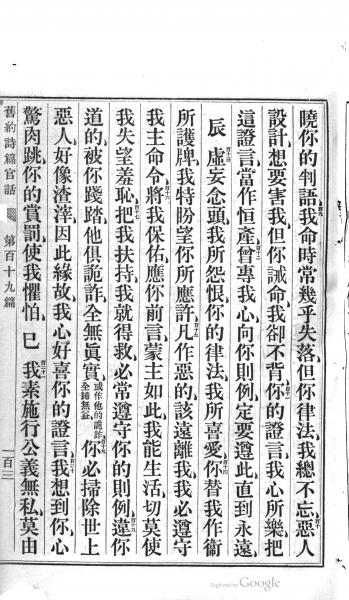 曉你的判語我命時常幾乎失落但你律法我總不忘惡人
設計想要害我但你誡命我卻不背你的證言我心所樂把
這證言當作恒產曾專我心向你則例定要遵此直到永遠
辰 虛妄念頭我所怨恨你的律法我所喜愛你替我作衛
所護牌我特盼望你所應許凡作惡的該遠離我我必遵守
我主命令將我保佑應你前言蒙主如此我能生活切莫使
我失望羞恥把我扶持我就得救必常遵守你的則例違你
道的被你踐踏他俱詭詐全無眞實或作他的詭詐全歸無益你必掃除世上
惡人好像渣滓因此緣故我心好喜你的證言我想到你心
驚肉跳你的賞罰使我懼怕 巳 我素施行公義無私莫由
舊約詩篇官話 第百十九篇 一百三
Digitized by Google